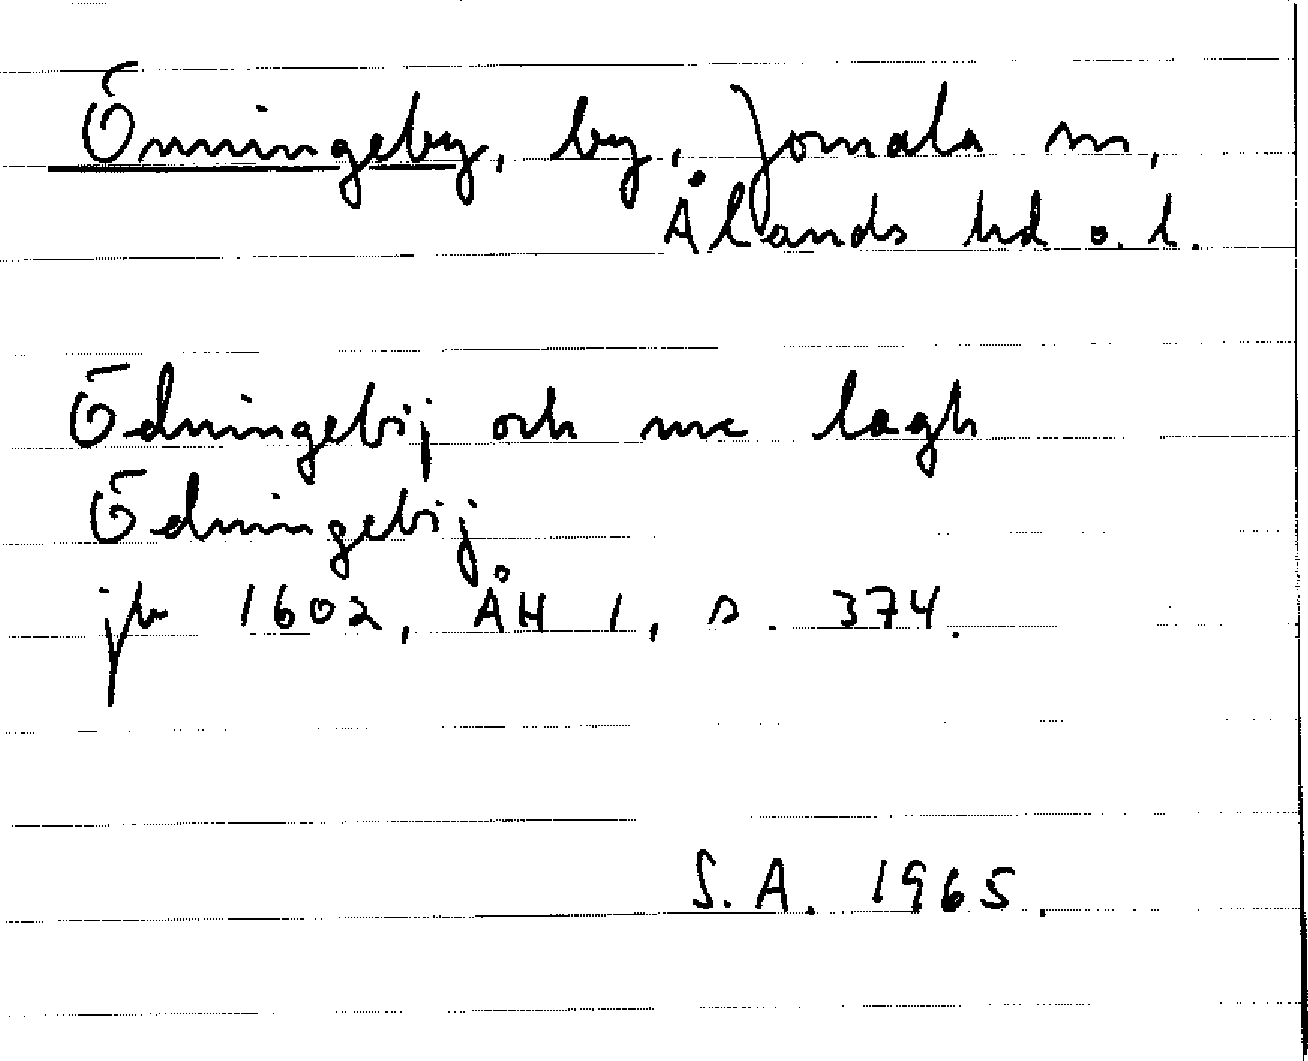 Önningeby, by, Jomala sn,
Ålands hd o. l.
Ödningebij och lagh
Ödningebij
jb 1602, ÅH 1, s. 374.
S.A. 1965.